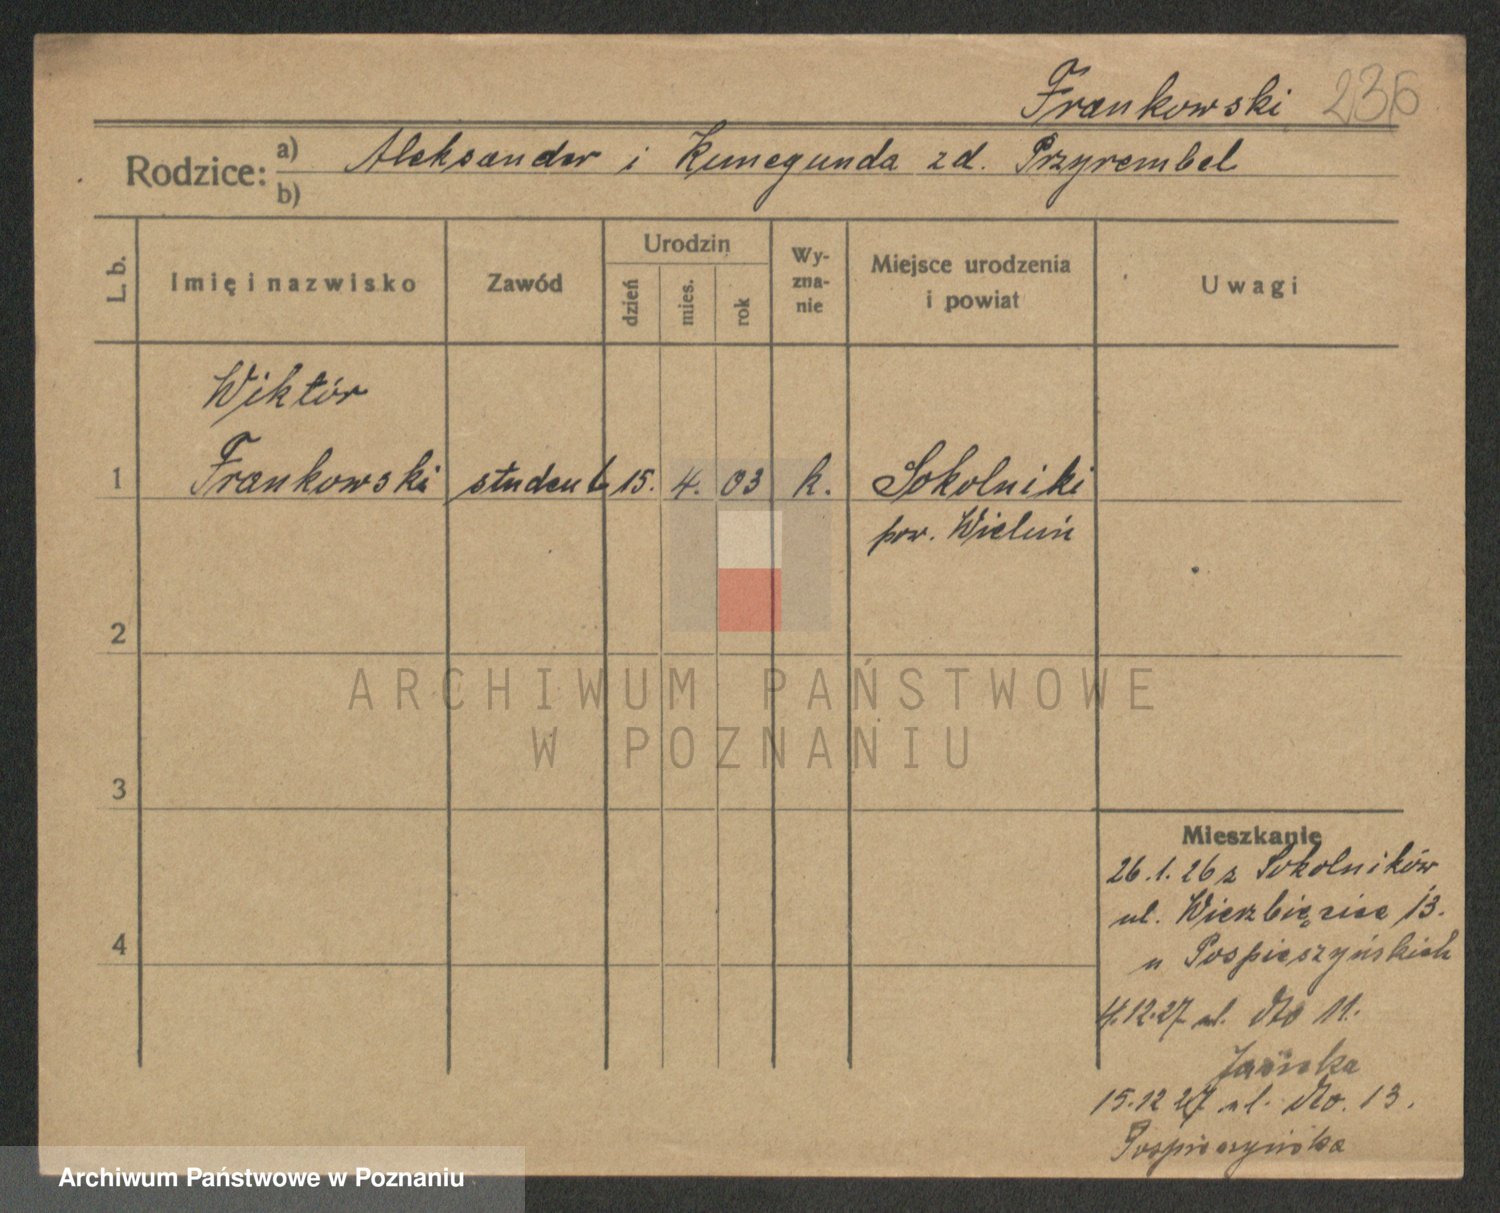 Frankowski 236
Rodzice: a) Aleksander i Kunegunda zd. Przyrembel
b)
L. b. Imię i nazwisko Zawód Urodzin dzień mies. rok Wyzna-nie Miejsce urodzenia i powiat Uwagi
Wiktór
1 Frankowski student 15. 4. 03 k. Sokolniki
pow. Wieluń
2
ARCHIWUM PAŃSTWOWE
W POZNANIU
3
Mieszkanie
26.1.26 z Sokolników
ul. Wierzbięcice 13.
4
u Pospieszyńskich
4.12.27 ul. No 11.
15.12 27 ul. No. 13.
Pospieszyńska
Archiwum Państwowe w Poznaniu